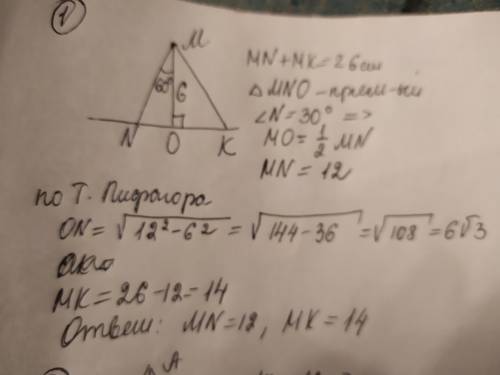 1
M
60° 6
N O K
MN+MK=26см
△MNO-прямо-ый
∠N=30° =>
MO=1/2 MN
MN=12
по Т. Пифагора
ON=√(12²-6²)=√(144-36)=√108=6√3
MK=26-12=14
Ответ: MN=12, MK=14
A